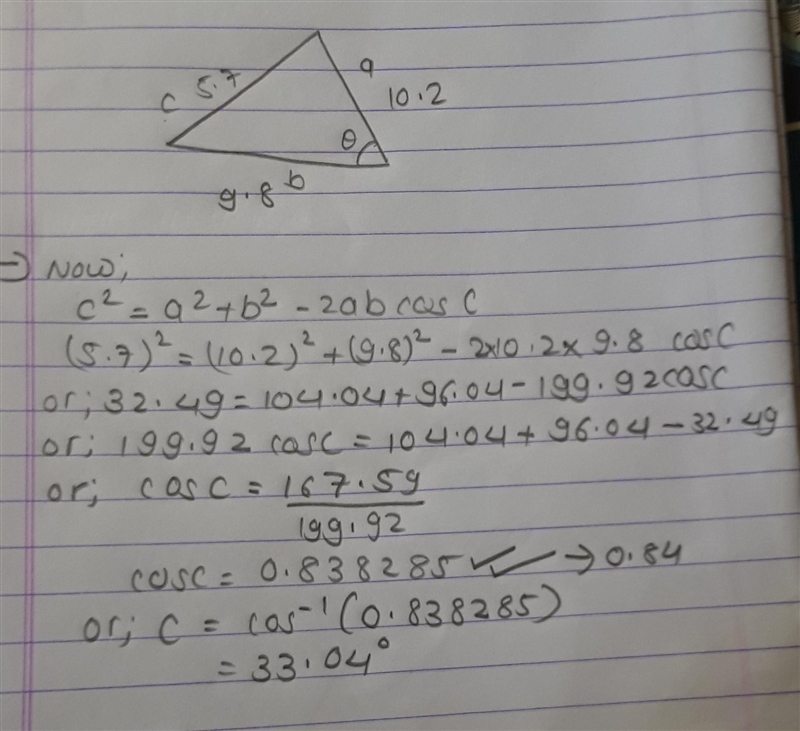 a
c 5.7
10.2
θ
9.8 b
→ Now;
c² = a² + b² - 2ab cos C
(5.7)² = (10.2)² + (9.8)² - 2×10.2× 9.8 cosC
or; 32.49 = 104.04 + 96.04 - 199.92cosC
or; 199.92 cosC = 104.04 + 96.04 - 32.49
or; cosC = 167.59
199.92
cosC = 0.838285 ✓✓ → 0.84
or; C = cos⁻¹(0.838285)
= 33.04°